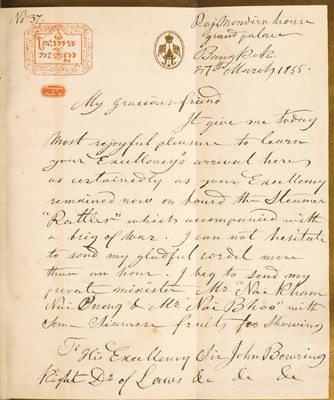 No 37.
Rajmondirn house
Grand palace
Bangkok
27th March 1855.
My Gracious friend
It give me today
most rejoyful pleasure to learn
your Excellency's arrival here
as certainedly as your Excellency
remained now on board the Steamer
"Rattler" which accompanied with
a brig of war. I can not hesitate
to send my gladful cordel more
than an hour. I beg to send my
private minister Mr "Nai Kham
Nai Pnong & Mr "Nai Bhoo" with
Some Siamese fruits for Showing
To His Excellency Sir John Bowring
Right Dr of Laws &c &c &c